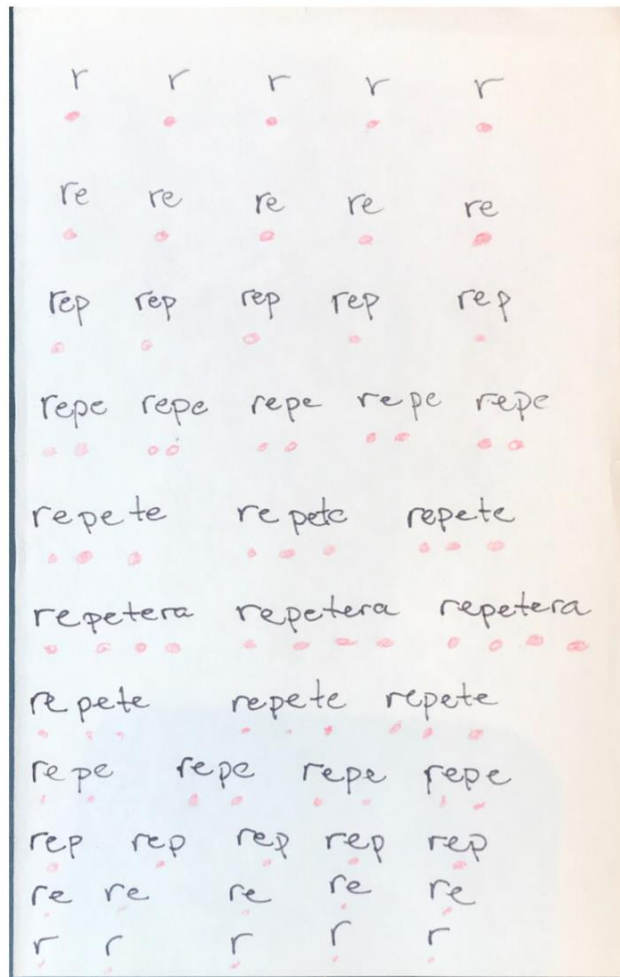 r r r r r
re re re re re
rep rep rep rep rep
repe repe repe repe repe
repete repete repete
repetera repetera repetera
repete repete repete
repe repe repe repe
rep rep rep rep rep
re re re re re
r r r r r